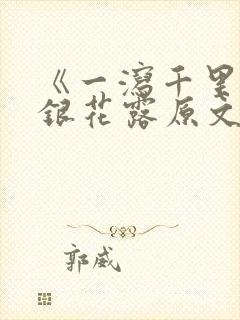 《一瀉千里
銀花露原文
郭威